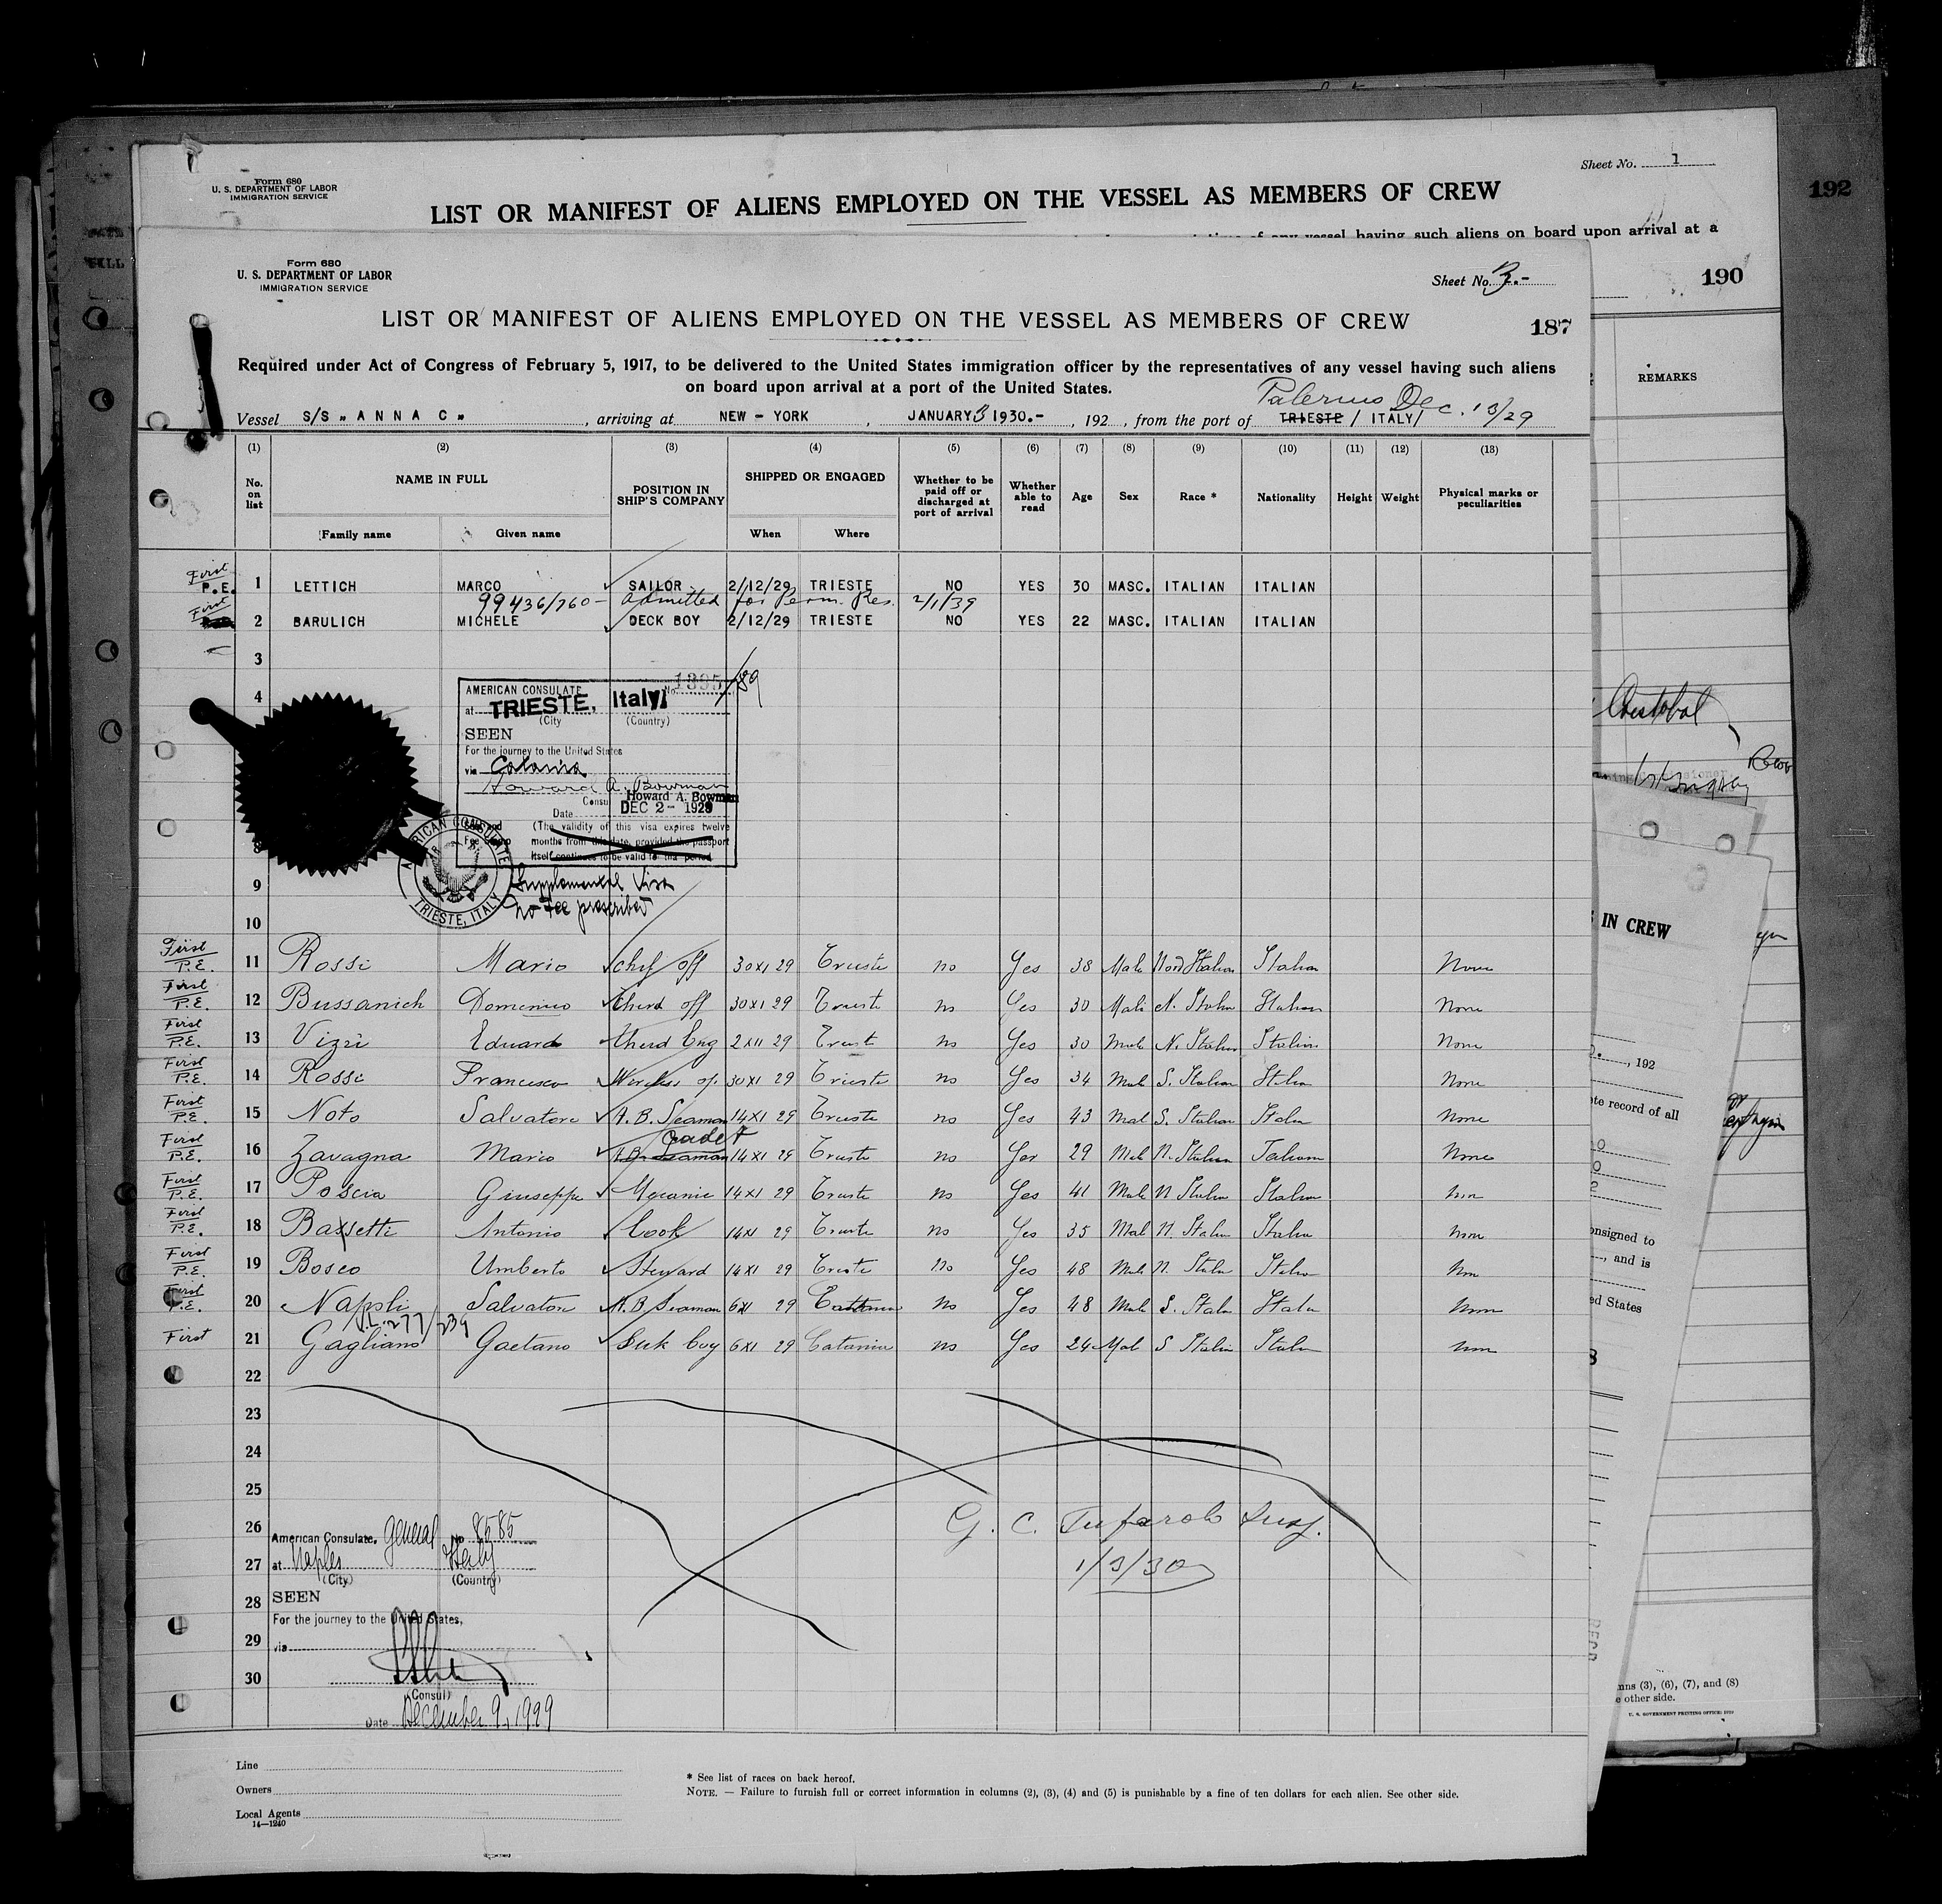 Sheet No. 1
Form 680
U. S. DEPARTMENT OF LABOR
IMMIGRATION SERVICE
LIST OR MANIFEST OF ALIENS EMPLOYED ON THE VESSEL AS MEMBERS OF CREW
192
of any vessel having such aliens on board upon arrival at a
190
REMARKS
Form 680
U. S. DEPARTMENT OF LABOR
IMMIGRATION SERVICE
Sheet No.
LIST OR MANIFEST OF ALIENS EMPLOYED ON THE VESSEL AS MEMBERS OF CREW
187
Required under Act of Congress of February 5, 1917, to be delivered to the United States immigration officer by the representatives of any vessel having such aliens
on board upon arrival at a port of the United States.
Palermo Dec. 13/29
Vessel S/S " A N N A C " , arriving at NEW - YORK , JANUARY 3 1930.- , 192 , from the port of TRIESTE / ITALY/
(1) (2) (3) (4) (5) (6) (7) (8) (9) (10) (11) (12) (13)
No. on list NAME IN FULL POSITION IN SHIP'S COMPANY SHIPPED OR ENGAGED Whether to be paid off or discharged at port of arrival Whether able to read Age Sex Race * Nationality Height Weight Physical marks or peculiarities
Family name Given name When Where
First P.E. 1 LETTICH MARCO SAILOR 2/12/29 TRIESTE NO YES 30 MASC. ITALIAN ITALIAN
99436/760 - admitted for Perm. Res. 2/1/39
First 2 BARULICH MICHELE DECK BOY 2/12/29 TRIESTE NO YES 22 MASC. ITALIAN ITALIAN
3
4
AMERICAN CONSULATE No. 1395/29
at TRIESTE, Italy
(City (Country)
SEEN
For the journey to the United States
via Catania
Howard A. Bowman
Consul Howard A. Bowman
Date DEC 2 - 1929
(The validity of this visa expires twelve
months from this date, provided the passport
itself continues to be valid for that period
AMERICAN CONSULATE TRIESTE, ITALY
Supplemental Visa
No Fee prescribed
9
10
First P.E. 11 Rossi Mario chif off 30 XI 29 Trieste no Yes 38 Male Nord Italian Italian None
First P.E. 12 Bussanich Domenico third off 30 XI 29 Trieste no Yes 30 Male N. Italian Italian None
First P.E. 13 Vizzi Eduardo third Eng 2 XII 29 Triest no Yes 30 Male N. Italian Italian None
First P.E. 14 Rossi Francesco Wireless op. 30 XI 29 Trieste no Yes 34 Male S. Italian Italian None
First P.E. 15 Noto Salvatore A. B. Seaman 14 XI 29 Trieste no Yes 43 Mal S. Italian Italian None
cadet
First P.E. 16 Zavagna Mario A.B. Seaman 14 XI 29 Trieste no Yes 29 Male N. Italian Italian None
First P.E. 17 Poscia Giuseppe Mecanic 14 XI 29 Trieste no Yes 41 Male N Italian Italian
First P.E. 18 Bassetti Antonio Cook 14 XI 29 Trieste no Yes 35 Mal N. Italian Italian
First P.E. 19 Bosco Umberto Steward 14 XI 29 Trieste No Yes 48 Male N. Italian Italian
First P.E. 20 Napoli Salvatore A. B. Seaman 6 XI 29 Catania No Yes 48 Male S. Italian Italian
S.L. 277/239
First 21 Gagliano Gaetano Deck boy 6 XI 29 Catania no Yes 24 Mal S Italian Italian
22
23
24
25
26
27
28
29
30
G. C. Tufarolo Insp.
1/3/30
American Consulate. General No 8585
at Naples Italy
(City) (Country)
SEEN
For the journey to the United States,
via
(Consul)
Date December 9, 1929
Line
Owners
Local Agents
14—1240
* See list of races on back hereof.
NOTE. — Failure to furnish full or correct information in columns (2), (3), (4) and (5) is punishable by a fine of ten dollars for each alien. See other side.
Cristobal
IN CREW
, 192
record of all
onsigned to
, and is
ed States
(3), (6), (7), and (8)
other side.
U. S. GOVERNMENT PRINTING OFFICE